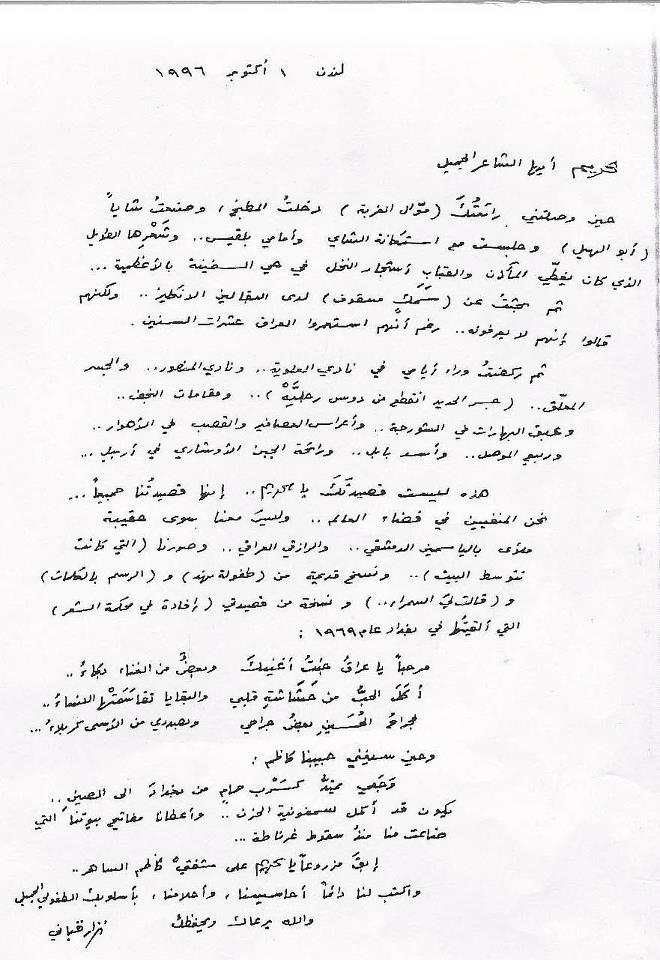 لندن ١ أكتوبر ١٩٩٦
كريم أيها الشاعر الجميل
حين وصلتني رائعتُكَ (موّال الغربة) دخلتُ المطبخ، وصنعتُ شاياً
(أبو الهيل) وجلست مع استكانة الشاي وأمامي بلقيس.. وشَعْرها الطويل
الذي كان يغطّي المآذن والقباب وأشجار النخل في حي السفينة بالأعظمية...
ثم بحثتُ عن (سَمَكٍ مسقوف) لدى البقالين الانكليز.. ولكنهم
قالوا إنهم لا يعرفونه.. رغم أنهم استعمروا العراق عشرات السنين.
ثم ركضتُ وراء أيامي في نادي العلوية.. ونادي المنصور.. والجسر
المعلّق.. (جسر الحديد انقطع من دوس رجليَّهْ).. ومقامات النجف..
وعبق البهارات في الشورجة.. وأعراس العصافير والقصب في الأهوار..
وربيع الموصل.. وأسد بابل.. ورائحة الجبن الأوشاري في أربيل...
هذه ليست قصيدتَكَ يا كريم.. إنها قصيدتُنا جميعاً...
نحن المنفيين في فضاء العالم.. وليس معنا سوى حقيبة
ملأى بالياسمين الدمشقي.. والرازقي العراقي.. وصورنا (التي كانت
تتوسط البيت).. ونسخ قديمة من (طفولة نهد) و (الرسم بالكلمات)
و (قالت ليَ السمراء..) و نسخة من قصيدتي (إفادة في محكمة الشعر)
التي ألقيتُها في بغداد عام ١٩٦٩:
مرحباً يا عراقُ جئتُ أغنيكَ وبعضٌ من الغناء بكاءُ..
أكلَ الحبُّ من حَشَاشةِ قلبي والبقايا تقاسَمَتْها النساءُ..
لجراح الحُسَين بعضُ جراحي وبصدري من الأسى كربلاءُ...
وحين سيغني حبيبنا كاظم:
وَجَعي يمتدُّ كسَرْب حمامٍ من بغدادَ الى الصين..
يكون قد أكمل السمفونية الحزن.. وأعطانا مفاتيح بيوتنا التي
ضاعت منا منذُ سقوط غرناطة...
إبقَ مزروعاً يا كريم على شفتيْ كاظم الساهر..
واكتب لنا دائماً أحاسيسنا، وأحلامنا، بأسلوبك الطفولي الجميل
والله يرعاك ويحفظك نزار قباني